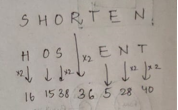 S H O R T E N .
H O S x2 E N T
x2 x2 x2 x2
16 15 38 36 5 28 40